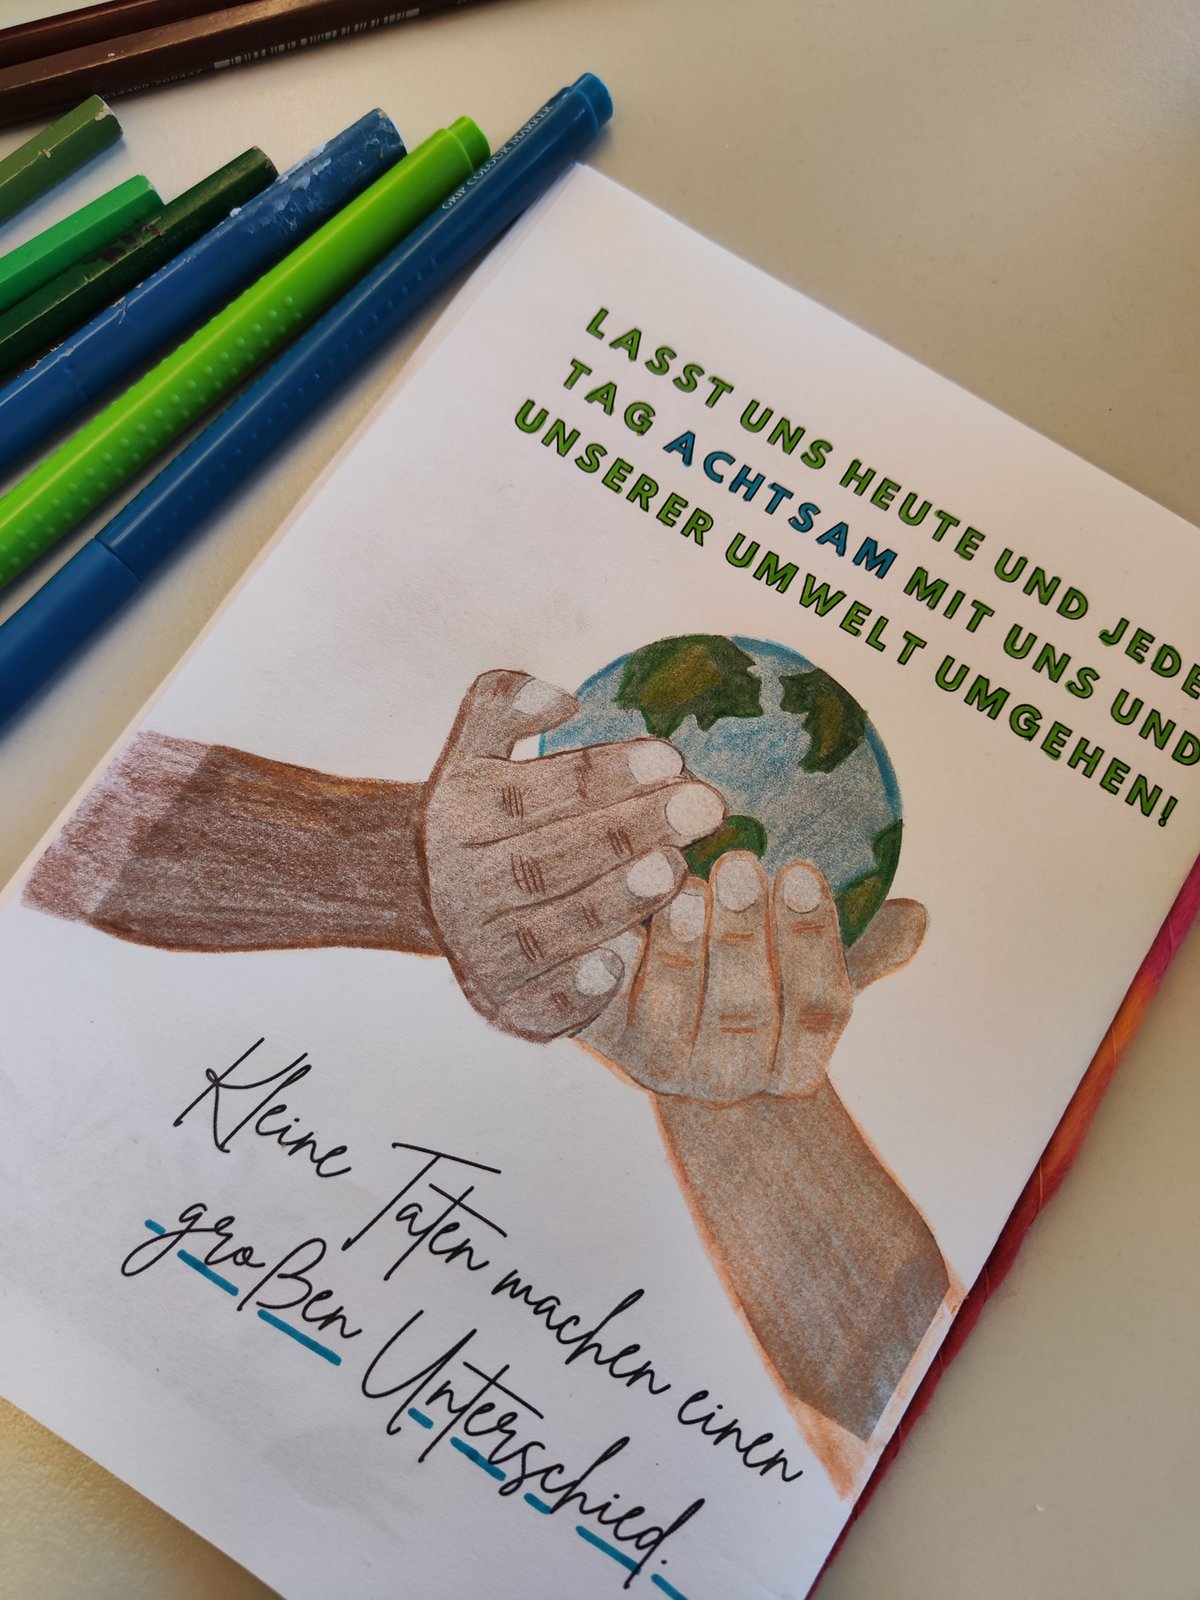 GRIP COLOUR MARKER
LASST UNS HEUTE UND JEDE
TAG ACHTSAM MIT UNS UND
UNSERER UMWELT UMGEHEN!
Kleine Taten machen einen
großen Unterschied.